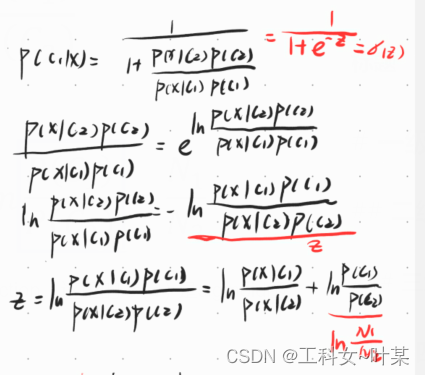 P(C₁|X) = 1 / (1 + P(X|C₂)P(C₂) / P(X|C₁)P(C₁)) = 1 / (1 + e^{-z}) = σ(z)
P(X|C₂)P(C₂) / P(X|C₁)P(C₁) = e^{ln P(X|C₂)P(C₂) / P(X|C₁)P(C₁)}
ln P(X|C₂)P(C₂) / P(X|C₁)P(C₁) = - ln P(X|C₁)P(C₁) / P(X|C₂)P(C₂)
z
z = ln P(X|C₁)P(C₁) / P(X|C₂)P(C₂) = ln P(X|C₁) / P(X|C₂) + ln P(C₁) / P(C₂)
ln N₁ / N₂
CSDN @工科女-叶某